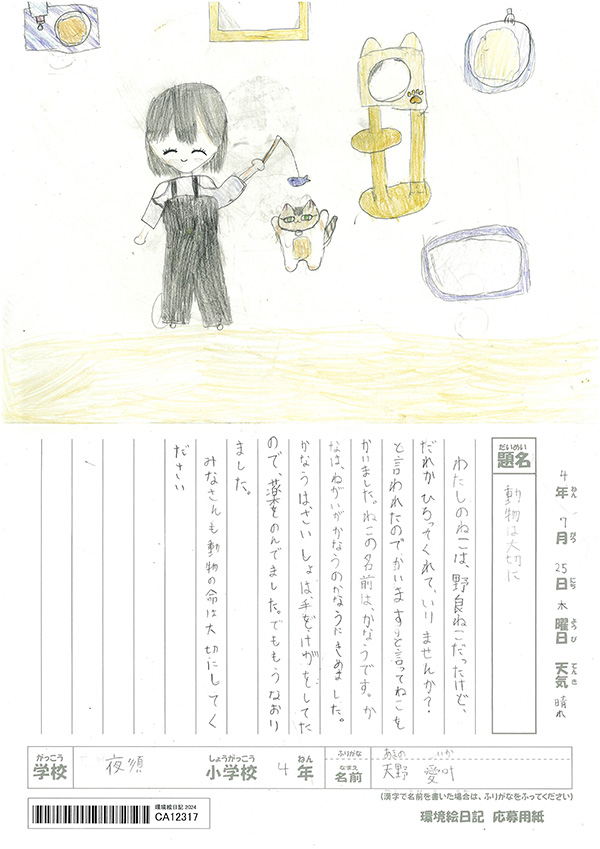 4年7月25日 木曜日 天気 晴れ
ねん がつ にち ようび てんき
だいめい
題名
動物は大切に
わたしのねこは、野良ねこだったけど、
だれかひろってくれて、いりませんか?
と言われたのでかいますりと言ってねこを
かいました。ねこの名前は、かなうです。か
なは、ねがいがかなうのかなうにきめました。
かなうはさいしょは、手をけがをしてた
ので、薬をのんでました。でももうなおり
ました。
みなさんも動物の命は大切にしてく
ださい
がっこう しょうがっこう ねん
学校 夜須 小学校 4年
ふりがな あまの いか
なまえ
名前 天野 愛叶
(漢字で名前を書いた場合は、ふりがなをふってください)
環境絵日記 応募用紙
環境絵日記 2024
CA12317